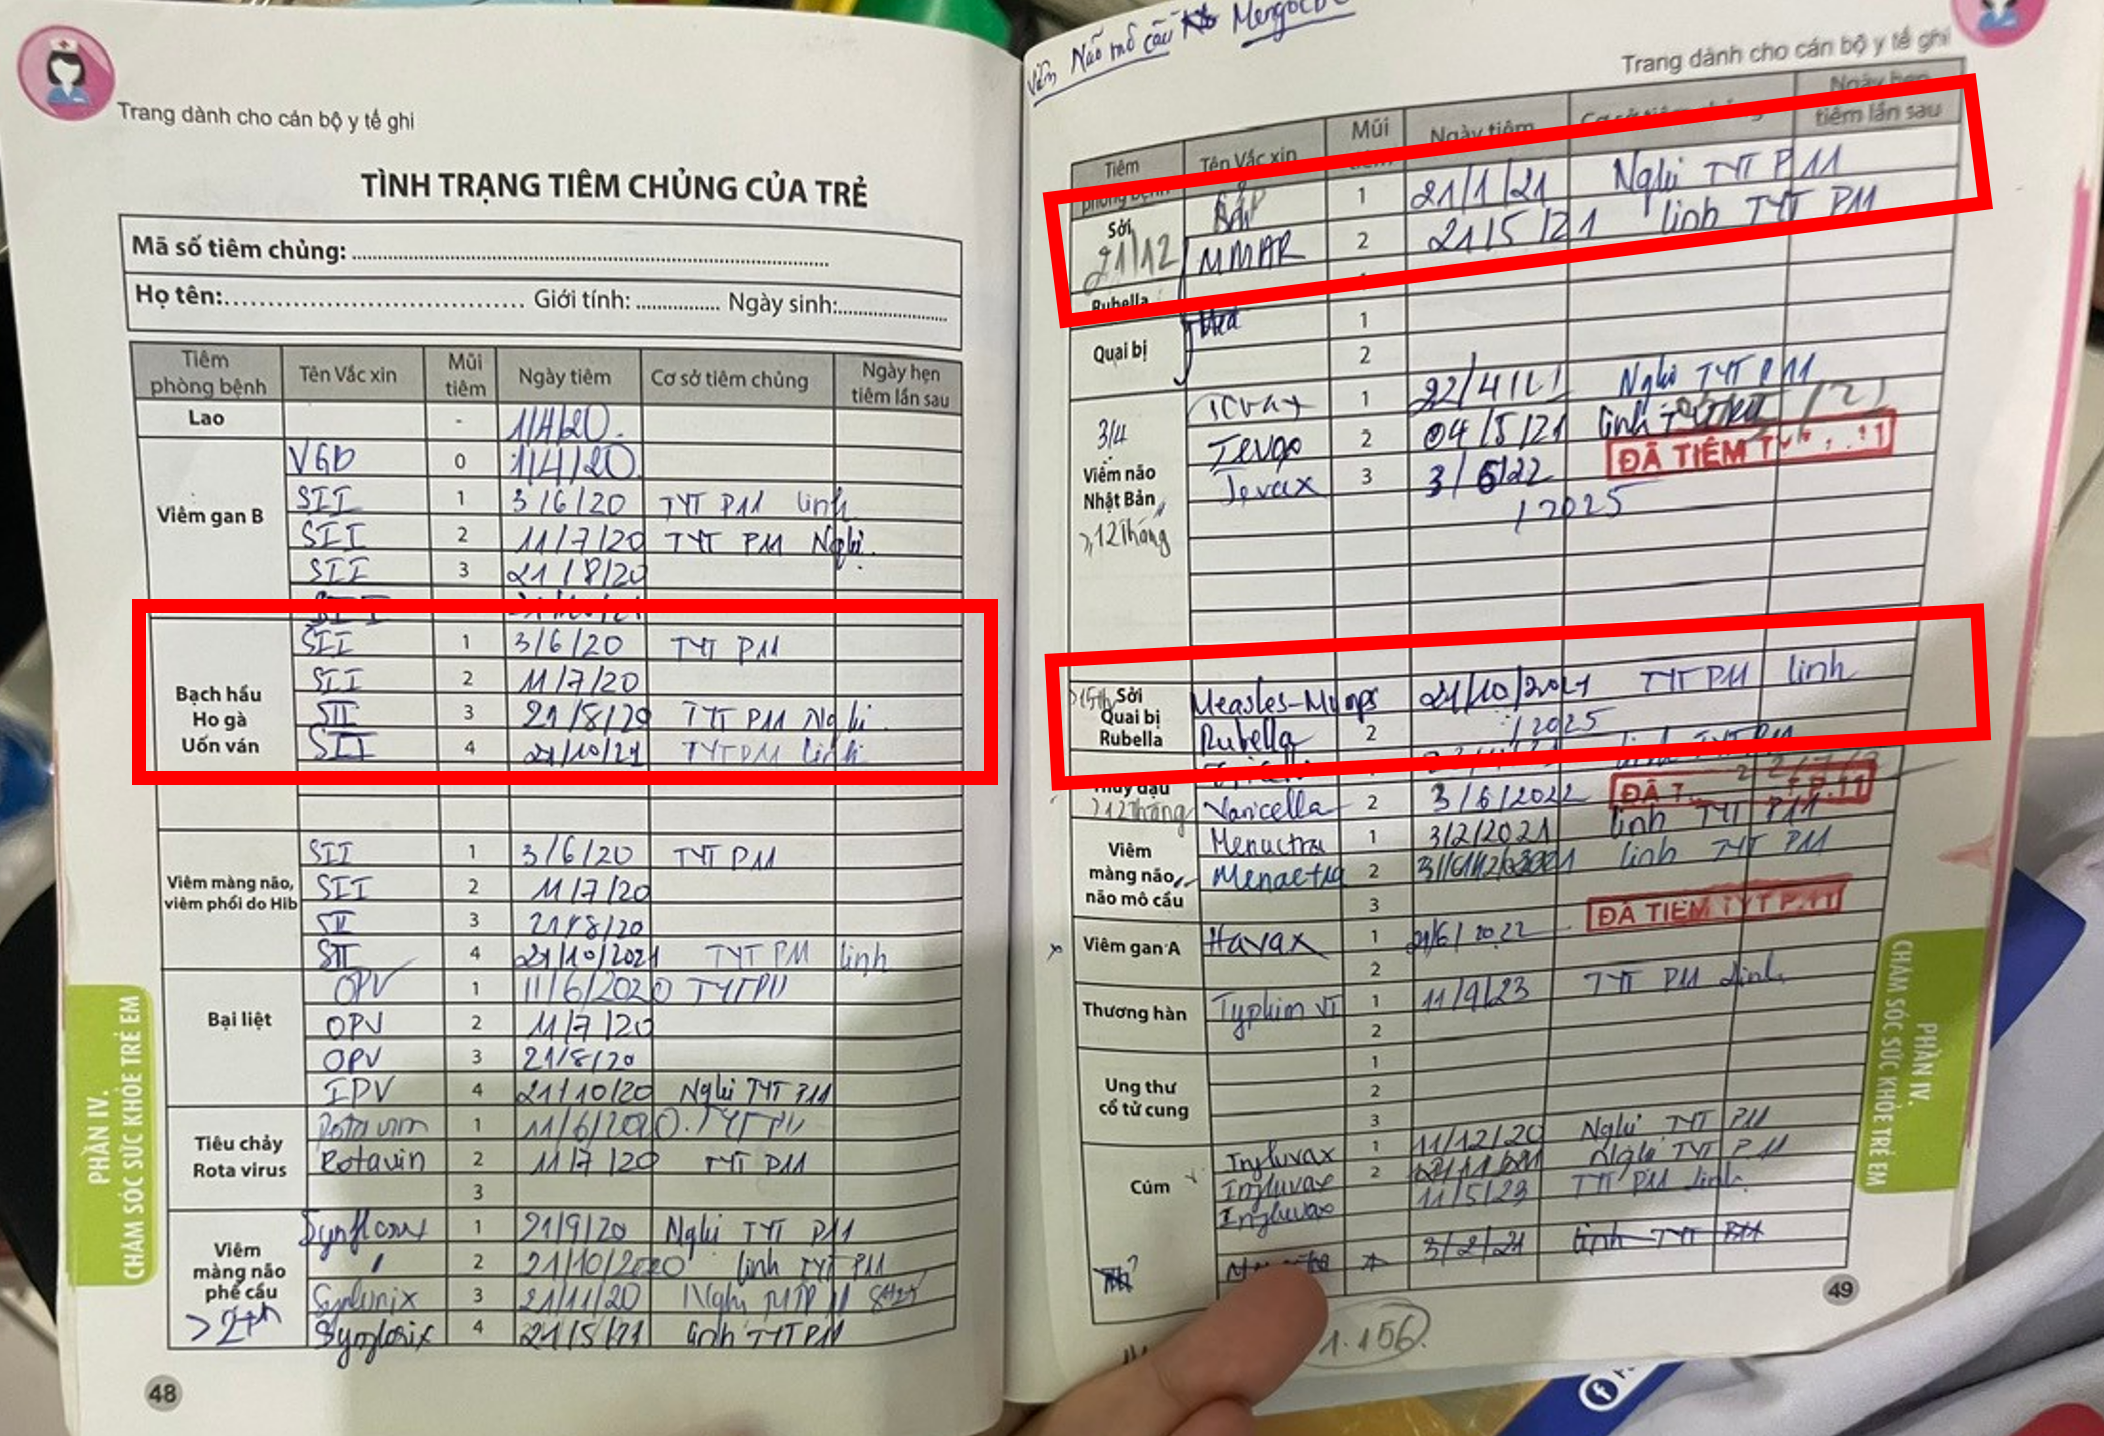 Trang dành cho cán bộ y tế ghi
TÌNH TRẠNG TIÊM CHỦNG CỦA TRẺ
Mã số tiêm chủng:
Họ tên: Giới tính: Ngày sinh:
Tiêm phòng bệnh Tên Vắc xin Mũi tiêm Ngày tiêm Cơ sở tiêm chủng Ngày hẹn tiêm lần sau
Lao - 1/4/20
Viêm gan B
VGB 0 1/4/20
SII 1 3/6/20 TYT P11 Linh
SII 2 11/7/20 TYT P11 Nghi
SII 3 21/8/20
Bạch hầu
Ho gà
Uốn ván
SII 1 3/6/20 TYT P11
SII 2 11/7/20
SII 3 21/8/20 TYT P11 Nghi
SII 4 21/10/21 TYT P11 Linh
Viêm màng não,
viêm phổi do Hib
SII 1 3/6/20 TYT P11
SII 2 11/7/20
SII 3 21/8/20
SII 4 21/10/2021 TYT P11 Linh
Bại liệt
OPV 1 11/6/2020 TYT P11
OPV 2 11/7/20
OPV 3 21/8/20
IPV 4 21/10/20 Nghi TYT P11
Tiêu chảy
Rota virus
Rotavin 1 11/6/2020. TYT P11
Rotavin 2 11/7/20 TYT P11
3
Viêm
màng não
phế cầu
>2th
Synflorix 1 21/9/20 Nghi TYT P11
" 2 21/10/2020 Linh TYT P11
Synflorix 3 21/11/20 Nghi
Synflorix 4 21/5/21 Linh TYT P11
PHẦN IV.
CHĂM SÓC SỨC KHỎE TRẺ EM
48
Viêm Não mô cầu
Trang dành cho cán bộ y tế ghi
Tiêm Tên Vắc xin Mũi Ngày tiêm Ngày hẹn tiêm lần sau
Sởi 21/12
1 21/1/21 Nghi TYT P11
MMR 2 21/5/21 Linh TYT P11
Rubella
Quai bị 1
2
3/4
Viêm não
Nhật Bản
≥12 Tháng
1 22/4/21 Nghi TYT P11
Jevax 2 04/5/21 Linh
ĐÃ TIÊM
Jevax 3 3/6/22
/2025
>15th Sởi
Quai bị
Rubella
Measles-Mumps 21/10/2021 TYT P11 Linh
Rubella 2 /2025
Thủy đậu
≥12 Tháng
Linh TYT P11
Varicella 2 3/6/2022
Viêm
màng não,
não mô cầu
Menactra 1 3/2/2021 Linh TYT P11
Menactra 2 Linh TYT P11
3
ĐÃ TIÊM TYT P.11
Viêm gan A Havax 1 21/6/2022
2
Thương hàn Typhim VI 1 11/9/23 TYT P11 Linh
2
Ung thư
cổ tử cung
1
2
3
Cúm
Influvax 1 11/12/20 Nghi TYT P11
Influvax 2 Nghi TYT P11
Influvax 11/5/23 TYT P11 Linh
3/2/21 Linh TYT P11
49
1.156
PHẦN IV.
CHĂM SÓC SỨC KHỎE TRẺ EM